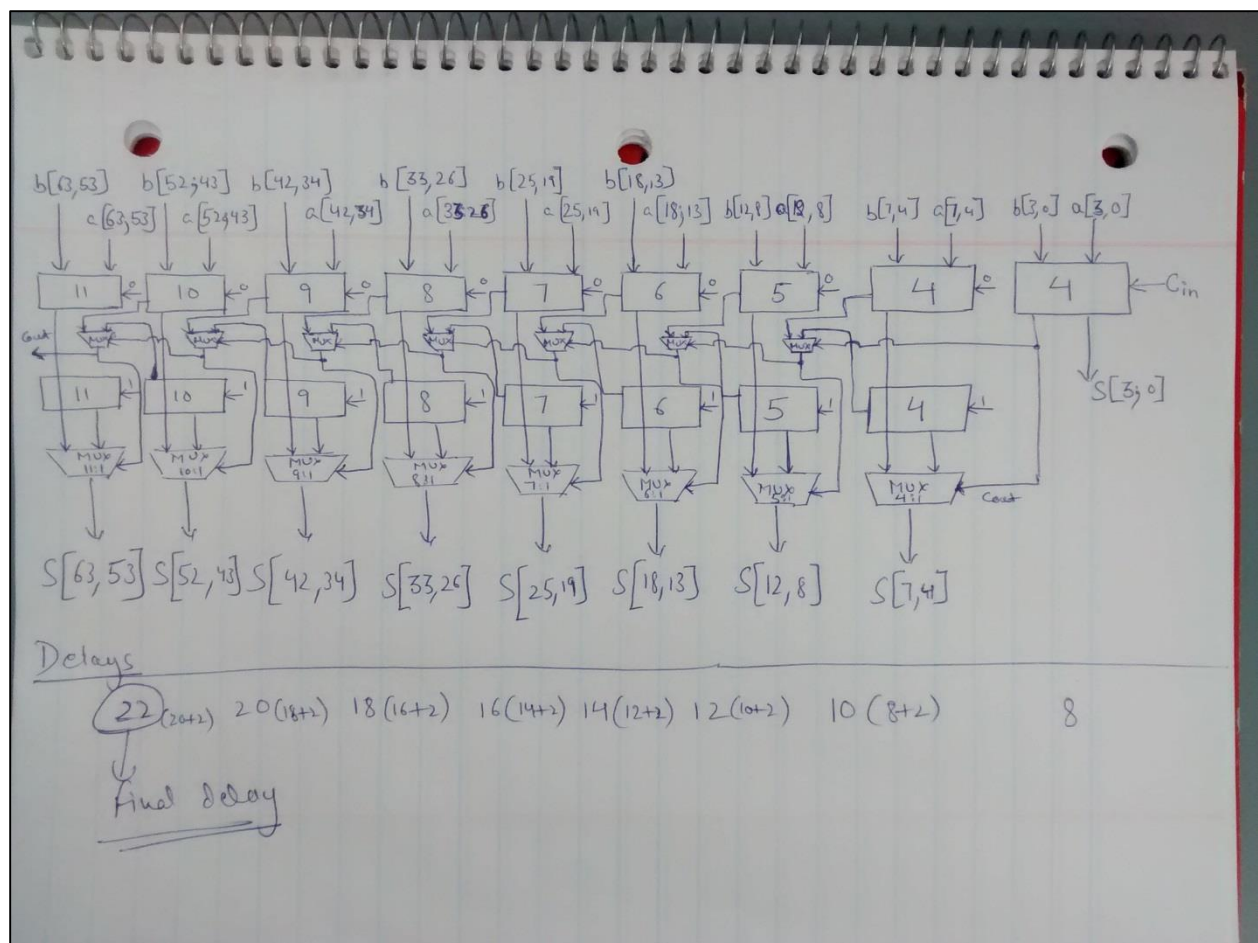 b[63,53] b[52;43] b[42,34] b[33,26] b[25,19] b[18,13]
a[63,53] a[52;43] a[42,34] a[3326] a[25,19] a[18;13] b[12,8] a[12,8] b[7,4] a[7,4] b[3,0] a[3,0]
11 0 10 0 9 0 8 0 7 0 6 0 5 0 4 0 4 Cin
Cout MUX MUX MUX MUX MUX MUX MUX
11 1 10 1 9 1 8 1 7 1 6 1 5 1 4 1 S[3;0]
MUX MUX MUX MUX MUX MUX MUX MUX
11:1 10:1 9:1 8:1 7:1 6:1 5:1 4:1 Cout
S[63,53] S[52,43] S[42,34] S[33,26] S[25,19] S[18,13] S[12,8] S[7,4]
Delays
22 (20+2) 20(18+2) 18(16+2) 16(14+2) 14(12+2) 12(10+2) 10(8+2) 8
Final delay